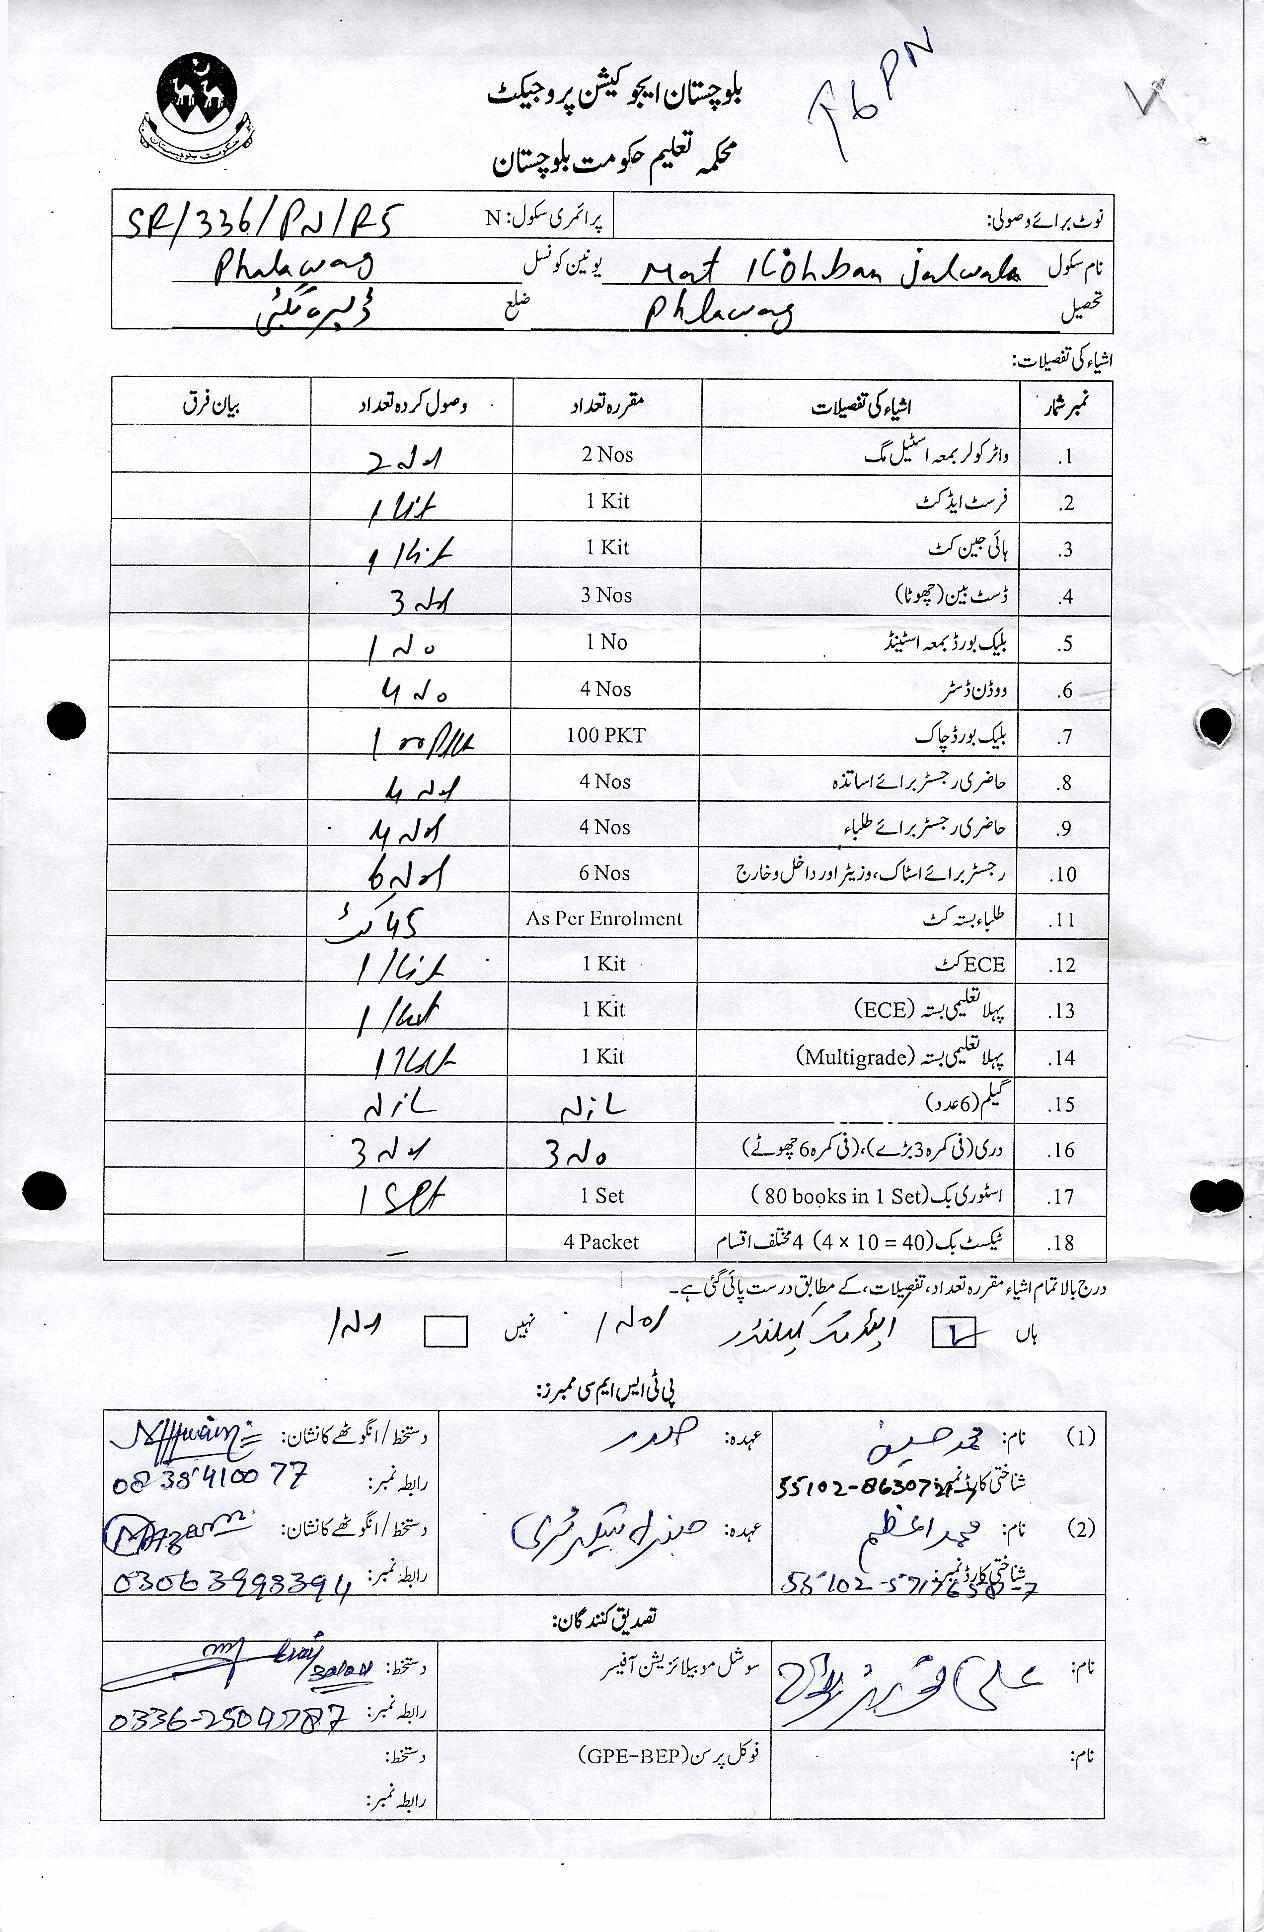 PN
بلوچستان ایجوکیشن پروجیکٹ
محکمہ تعلیم حکومت بلوچستان
حکومت بلوچستان
نوٹ برائے وصولی: پرائمری سکول: N SR/336/PN/RS
نام سکول Mat Kohban Jalwala یونین کونسل Phalawag
تحصیل Phlawag ضلع ڈیرہ بگٹی
اشیاء کی تفصیلات:
نمبر شمار اشیاء کی تفصیلات مقررہ تعداد وصول کردہ تعداد بیان فرق
1. واٹر کولر بمعہ اسٹیل مگ 2 Nos 2 Nos
2. فرسٹ ایڈ کٹ 1 Kit 1 Kit
3. ہائی جین کٹ 1 Kit 1 Kit
4. ڈسٹ بین (چھوٹا) 3 Nos 3 Nos
5. بلیک بورڈ بمعہ اسٹینڈ 1 No 1 No
6. ووڈن ڈسٹر 4 Nos 4 No
7. بلیک بورڈ چاک 100 PKT 100 PKt
8. حاضری رجسٹر برائے اساتذہ 4 Nos 4 Nos
9. حاضری رجسٹر برائے طلباء 4 Nos 4 Nos
10. رجسٹر برائے اسٹاک، وزیٹر اور داخل و خارج 6 Nos 6 Nos
11. طلباء بستہ کٹ As Per Enrolment 45 کٹ
12. ECE کٹ 1 Kit 1 Kit
13. پہلا تعلیمی بستہ (ECE) 1 Kit 1 Kit
14. پہلا تعلیمی بستہ (Multigrade) 1 Kit 1 Kit
15. گیلم (6 عدد) Nil Nil
16. دری (فی کمرہ 3 بڑے)، (فی کمرہ 6 چھوٹے) 3 No 3 Nos
17. اسٹوری بک (80 books in 1 Set) 1 Set 1 Set
18. ٹیکسٹ بک (4 × 10 = 40) 4 مختلف اقسام 4 Packet –
درج بالا تمام اشیاء مقررہ تعداد، تفصیلات، کے مطابق درست پائی گئی ہے۔
ہاں کیلنڈر نہیں
پی ٹی ایس ایم سی ممبرز:
(1) نام: محمد حنیف عہدہ: صدر دستخط/انگوٹھے کا نشان:
شناختی کارڈ نمبر: رابطہ نمبر: 0838410077
(2) نام: محمد اعظم عہدہ: جنرل سیکرٹری دستخط/انگوٹھے کا نشان: M Azam
شناختی کارڈ نمبر: رابطہ نمبر: 03063993394
تصدیق کنندگان:
نام: علی سوشل موبیلائزیشن آفیسر دستخط:
رابطہ نمبر: 0336-2504787
نام: فوکل پرسن (GPE-BEP) دستخط:
رابطہ نمبر: